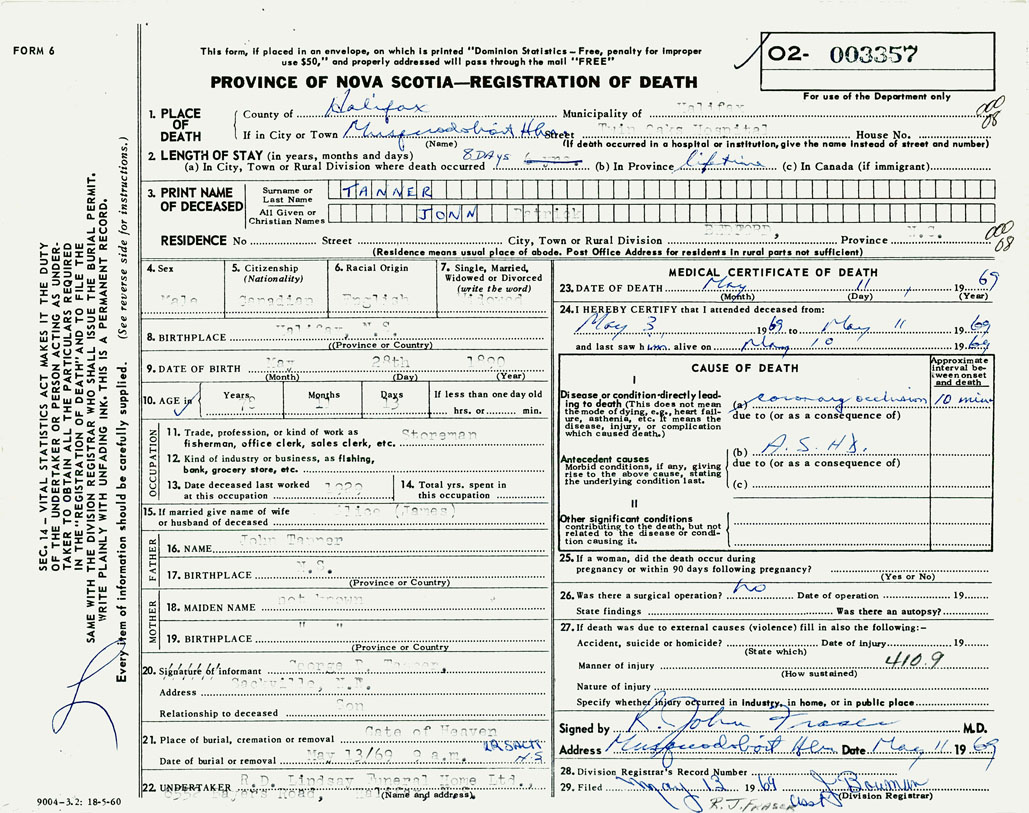 FORM 6
This form, if placed in an envelope, on which is printed "Dominion Statistics – Free, penalty for improper
use $50," and properly addressed will pass through the mail "FREE"
PROVINCE OF NOVA SCOTIA—REGISTRATION OF DEATH
O2- 003357
For use of the Department only
1. PLACE OF DEATH
County of Halifax Municipality of Halifax
If in City or Town Musquodoboit Hbr. Street Twin Oaks Hospital House No.
(Name) (If death occurred in a hospital or institution, give the name instead of street and number)
000
08
2. LENGTH OF STAY (in years, months and days)
(a) In City, Town or Rural Division where death occurred 8 DAYS (b) In Province lifetime (c) In Canada (if immigrant)
3. PRINT NAME OF DECEASED
Surname or Last Name TANNER
All Given or Christian Names JOHN Patrick
RESIDENCE No Street City, Town or Rural Division BEDFORD, Province N.S.
(Residence means usual place of abode. Post Office Address for residents in rural parts not sufficient)
000
68
4. Sex
Male
5. Citizenship
(Nationality)
Canadian
6. Racial Origin
English
7. Single, Married,
Widowed or Divorced
(write the word)
Widowed
8. BIRTHPLACE Halifax, N.S.
((Province or Country)
9. DATE OF BIRTH May 28th
(Month) (Day) (Year)
10. AGE in
Years Months Days If less than one day old
hrs. or min.
OCCUPATION
11. Trade, profession, or kind of work as
fisherman, office clerk, sales clerk, etc. Stoneman
12. Kind of industry or business, as fishing,
bank, grocery store, etc.
13. Date deceased last worked
at this occupation
14. Total yrs. spent in
this occupation
15. If married give name of wife
or husband of deceased Alice (James)
FATHER
16. NAME John Tanner
17. BIRTHPLACE N.S.
(Province or Country)
MOTHER
18. MAIDEN NAME not known
19. BIRTHPLACE " "
(Province or Country)
20. Signature of informant George
Address Sackville,
Relationship to deceased Son
21. Place of burial, cremation or removal Gate of Heaven
Date of burial or removal May 13/69 9 a.m.
22. UNDERTAKER R.D. Lindsay Funeral Home Ltd.,
Bayers Road,
(Name and address)
9004-3.2: 18-5-60
MEDICAL CERTIFICATE OF DEATH
23. DATE OF DEATH May 11, 1969
(Month) (Day) (Year)
24. I HEREBY CERTIFY that I attended deceased from:
May 3 1969 to May 11 1969
and last saw him alive on May 10 1969
CAUSE OF DEATH
Approximate
interval be-
tween onset
and death
I
Disease or condition directly lead-
ing to death (This does not mean
the mode of dying, e.g., heart fail-
ure, asthenia, etc. It means the
disease, injury, or complication
which caused death.)
(a) coronary occlusion 10 min
due to (or as a consequence of)
Antecedent causes
Morbid conditions, if any, giving
rise to the above cause, stating
the underlying condition last.
(b) A.S.HD.
due to (or as a consequence of)
(c)
II
Other significant conditions
contributing to the death, but not
related to the disease or condi-
tion causing it.
25. If a woman, did the death occur during
pregnancy or within 90 days following pregnancy?
(Yes or No)
26. Was there a surgical operation? no Date of operation 19
State findings Was there an autopsy?
27. If death was due to external causes (violence) fill in also the following:–
Accident, suicide or homicide? Date of injury 19
(State which)
Manner of injury 410.9
(How sustained)
Nature of injury
Specify whether injury occurred in industry, in home, or in public place
Signed by R. John Fraser M.D.
Address Musquodoboit Hbr. Date May 11 1969
28. Division Registrar's Record Number
29. Filed May 13 1969 J Bowman
(Division Registrar)
R.J. FRASER
SEC. 14 – VITAL STATISTICS ACT MAKES IT THE DUTY
OF THE UNDERTAKER OR PERSON ACTING AS UNDER-
TAKER TO OBTAIN ALL THE PARTICULARS REQUIRED
IN THE "REGISTRATION OF DEATH" AND TO FILE THE
SAME WITH THE DIVISION REGISTRAR WHO SHALL ISSUE THE BURIAL PERMIT.
WRITE PLAINLY WITH UNFADING INK. THIS IS A PERMANENT RECORD.
Every item of information should be carefully supplied. (See reverse side for instructions.)